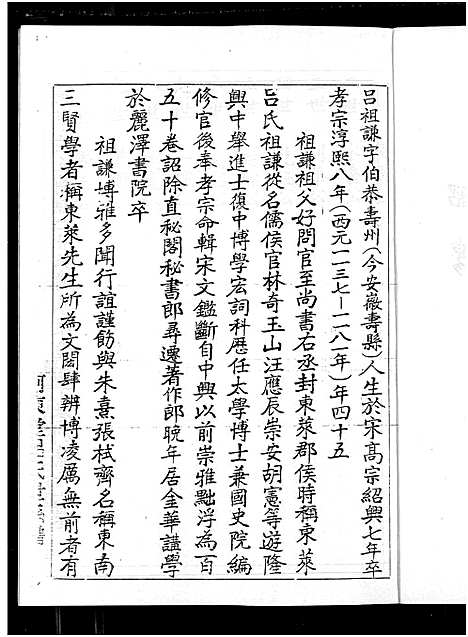 呂祖謙字伯恭壽州(今安徽壽縣)人生於宋高宗紹興七年卒
孝宗淳熙八年(西元一一三七—一一八一年)年四十五
祖謙祖父好問官至尚書右丞封東萊郡侯時稱東萊
呂氏祖謙從名儒侯官林奇玉山汪應辰崇安胡憲等遊隆
興中舉進士復中博學宏詞科歷任太學博士兼國史院編
修官後奉孝宗命輯宋文鑑斷自中興以前崇雅黜浮為一百
五十卷詔除直秘閣秘書郎尋遷著作郎晚年居金華講學
於麗澤書院卒
祖謙博雅多聞行誼謹飭與朱熹張栻齊名稱東南
三賢學者稱東萊先生所為文閎肆辨博凌厲無前者有